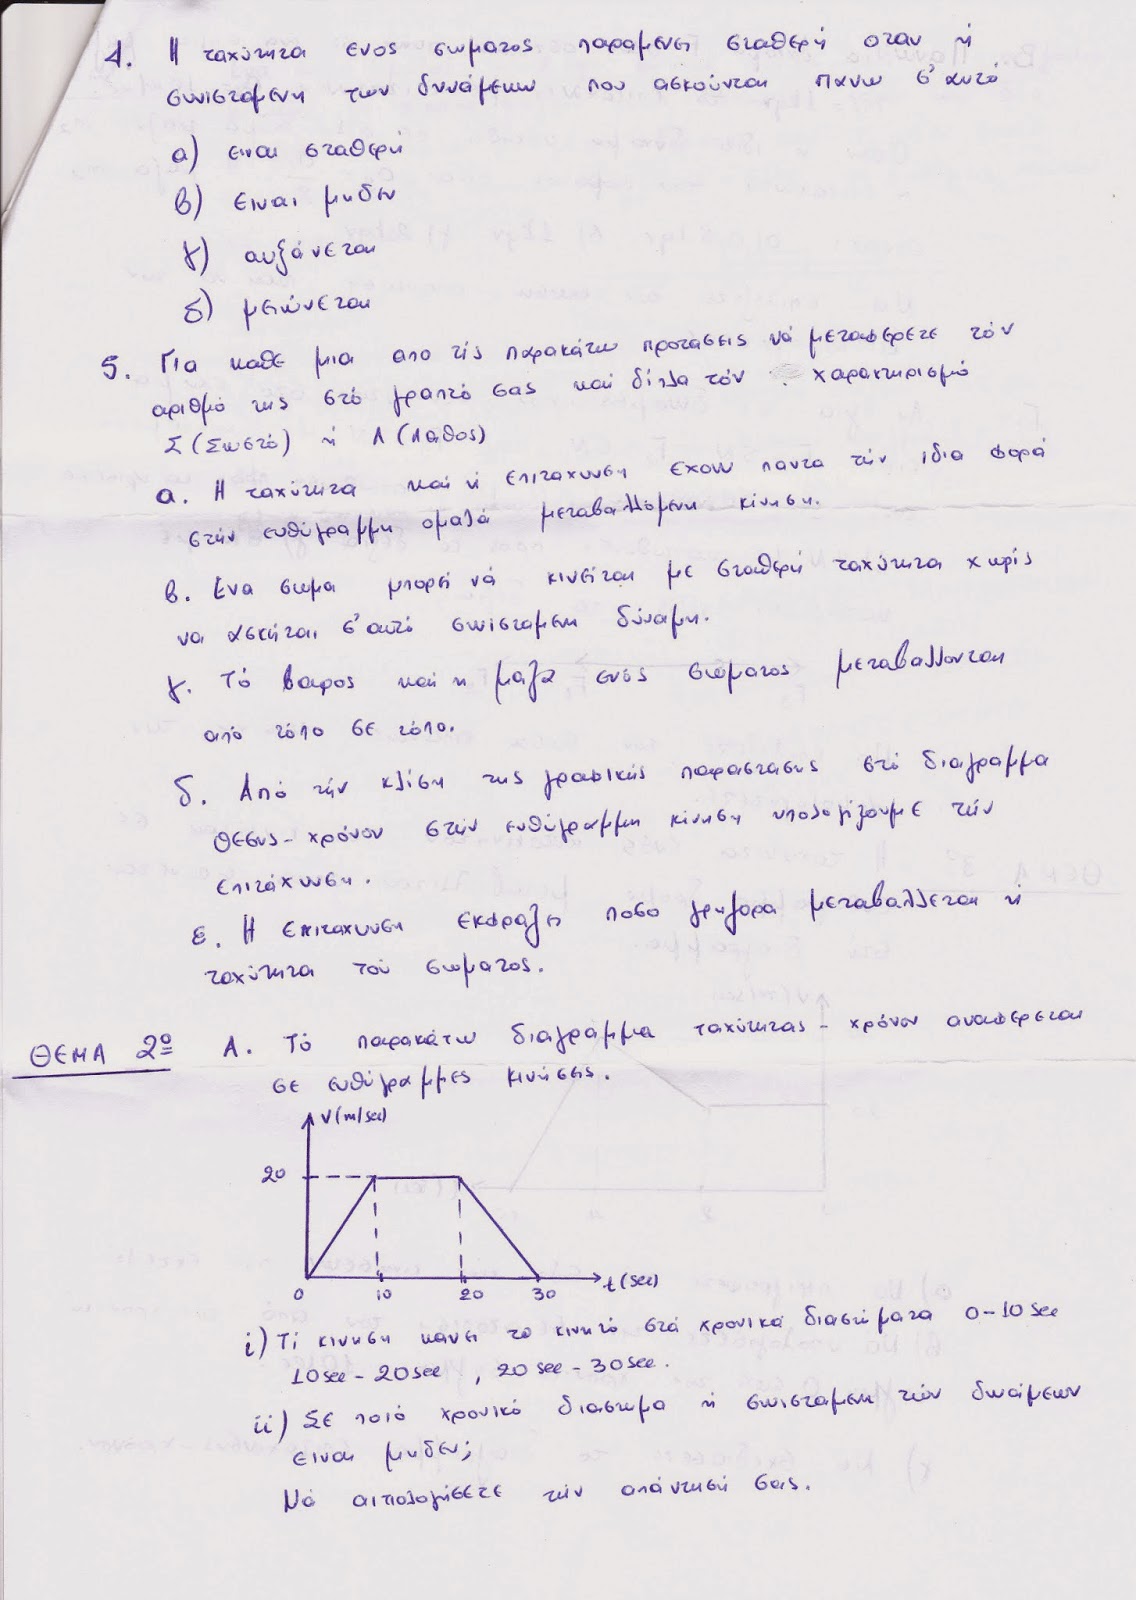 4. Η ταχύτητα ενος σωματος παραμενει σταθερή οταν ή
συνισταμενη των δυνάμεων που ασκούνται πανω σ'αυτό
α) ειναι σταθερή
β) ειναι μηδεν
γ) αυξάνεται
δ) μειώνεται
5. Για καθε μια απο τίς παρακάτω προτάσεις νά μεταφερετε τόν
αριθμό της στό γραπτό σας και δίπλα τόν χαρακτηρισμό
Σ (Σωστό) ή Λ (Λαθος)
α. Η ταχύτητα και ή επιταχυνση εχουν παντα τήν ιδια φορά
στήν ευθύγραμμη ομαλά μεταβαλλόμενη κίνηση.
β. Ενα σωμα μπορεί νά κινείται με σταθερή ταχύτητα χωρίς
να ασκήται σ'αυτό συνισταμενη δύναμη.
γ. Τό βαρος και η μαζα ενός σωματος μεταβαλλονται
από τόπο σε τόπο.
δ. Από τήν κλίση της γραφικής παραστασης στό διαγραμμα
θεσης - χρόνου στήν ευθύγραμμη κίνηση υπολογίζουμε τήν
επιτάχυνση.
ε. Η επιταχυνση εκφράζει ποσο γρηγορα μεταβαλλεται ή
ταχύτητα τού σωματος.
ΘΕΜΑ 2º Α. Τό παρακάτω διαγραμμα ταχύτητας - χρόνου αναφερεται
σε ευθύγραμμες κινήσεις.
V(m/sec)
20
0 10 20 30 t(sec)
i) Τί κινηση κανει το κινητό στά χρονικά διαστήματα 0-10sec
10sec - 20sec , 20sec - 30sec.
ii) Σε ποιό χρονικό διαστημα ή συνισταμενη τών δυνάμεων
ειναι μηδεν;
Νά αιτιολογήσετε τήν απάντησή σας.